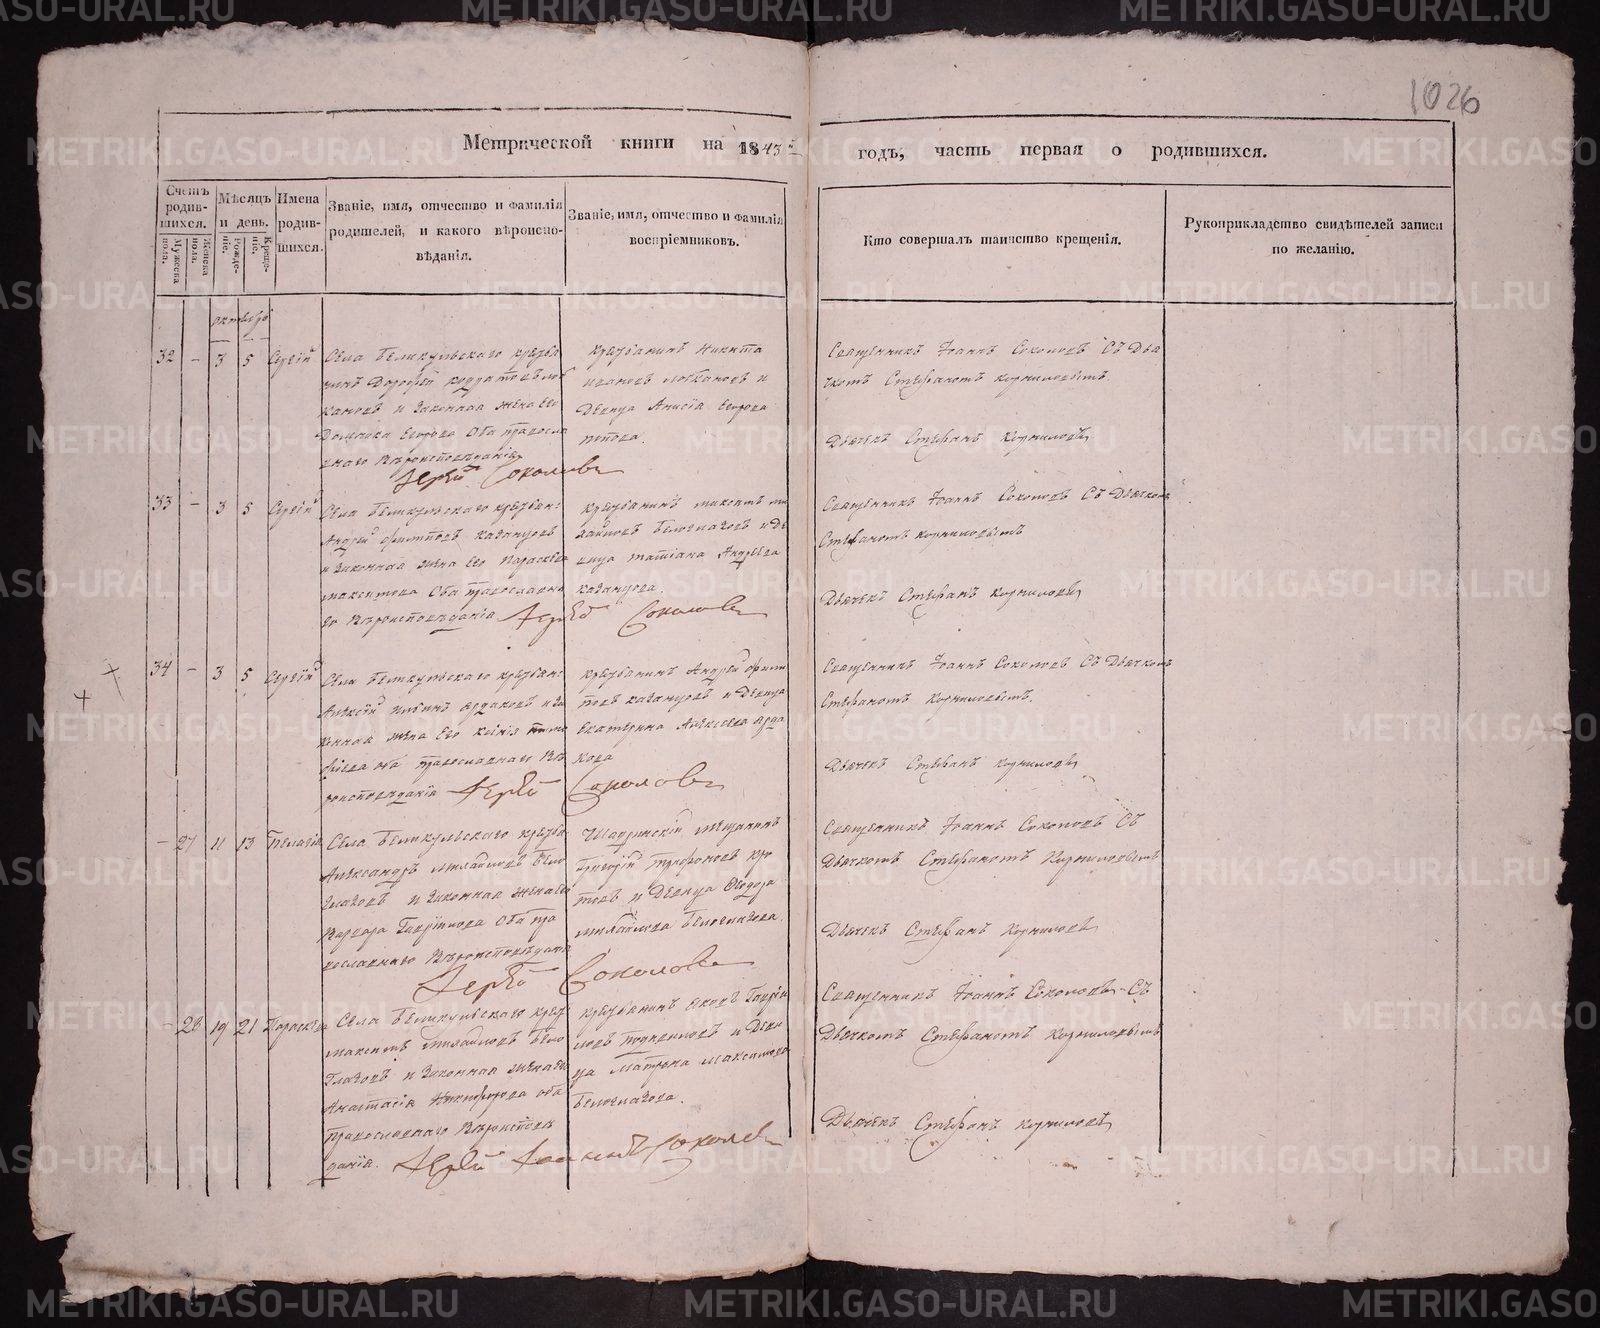 1026
Метрической книги на 1843й годъ, часть первая о родившихся.
Счетъ родив-шихся.
Мужеска пола.
Женска пола.
Мѣсяцъ и день.
Рожде-нiе.
Креще-нiе.
Имена родив-шихся.
Званiе, имя, отчество и фамилiя родителей, и какого вѣроиспо-вѣданiя.
Званiе, имя, отчество и фамилiя воспрiемниковъ.
Кто совершалъ таинство крещенiя.
Рукоприкладство свидѣтелей записи по желанiю.
октябрь
32 - 3 5 Сергiй
Села Беликульскаго крестья
нинъ Дорофей
и законная жена его
Домника Егорова оба правосла
внаго вѣроисповѣданiя
Iерей Соколовъ
крестьянинъ Никита
Ивановъ и
девица Анисiя Егорова
Священникъ Iоаннъ Соколовъ съ дья
чкомъ Стефаномъ Корниловымъ.
Дьячекъ Стефанъ Корниловъ
33 - 3 5 Сергiй
Села Беликульскаго крестьян:
Андрей Филиповъ Казанцовъ
и законная жена его Параскева
Максимова оба православна
го вѣроисповѣданiя Iерей Соколовъ
крестьянинъ Максимъ ми
хайловъ Белоглазовъ и де
вица татiана Андреева
казанцова.
Священникъ Iоаннъ Соколовъ съ Дьячкомъ
Стефаномъ корниловымъ
Дьячекъ Стефанъ корниловъ
34 - 3 5 Сергiй
Села Беликульскаго крестьян:
Алексей и за
конная жена его Ксенiя тимо
фѣева оба православнаго вѣ
роисповѣданiя Iерей Соколовъ
крестьянинъ Андрей фили
повъ казанцовъ и девица
Екатерина Алексеева
Священникъ Iоаннъ Соколовъ съ Дьячкомъ
Стефаномъ Корниловымъ.
Дьячекъ Стефанъ корниловъ
- 27 11 13 Пелагiя
Села Беликульскаго крестья
Александръ михайловъ Бело
глазовъ и законная жена его
Варвара Гаврiилова оба пра
вославнаго вѣроисповѣданiя
Iерей Соколовъ
Шадринскiй мещанинъ
Григорiй трифоновъ
и девица Феодора
михайлова Белоглазова.
Священникъ Iоаннъ Соколовъ съ
Дьячкомъ Стефаномъ Корниловымъ
Дьячекъ Стефанъ Корниловъ
- 28 19 21 Параскева
Села Беликульскаго крест
максимъ михайловъ Бело
глазовъ и законная жена его
Анастасiя Никифорова оба
православнаго вѣроисповѣ
данiя. Iерей Iоаннъ Соколовъ
крестьянинъ Яковъ Гаврiи
ловъ и деви
ца Матрона максимова
Белоглазова.
Священникъ Iоаннъ Соколовъ съ
Дьячкомъ Стефаномъ Корниловымъ
Дьячекъ Стефанъ корниловъ
METRIKI.GASO-URAL.RU